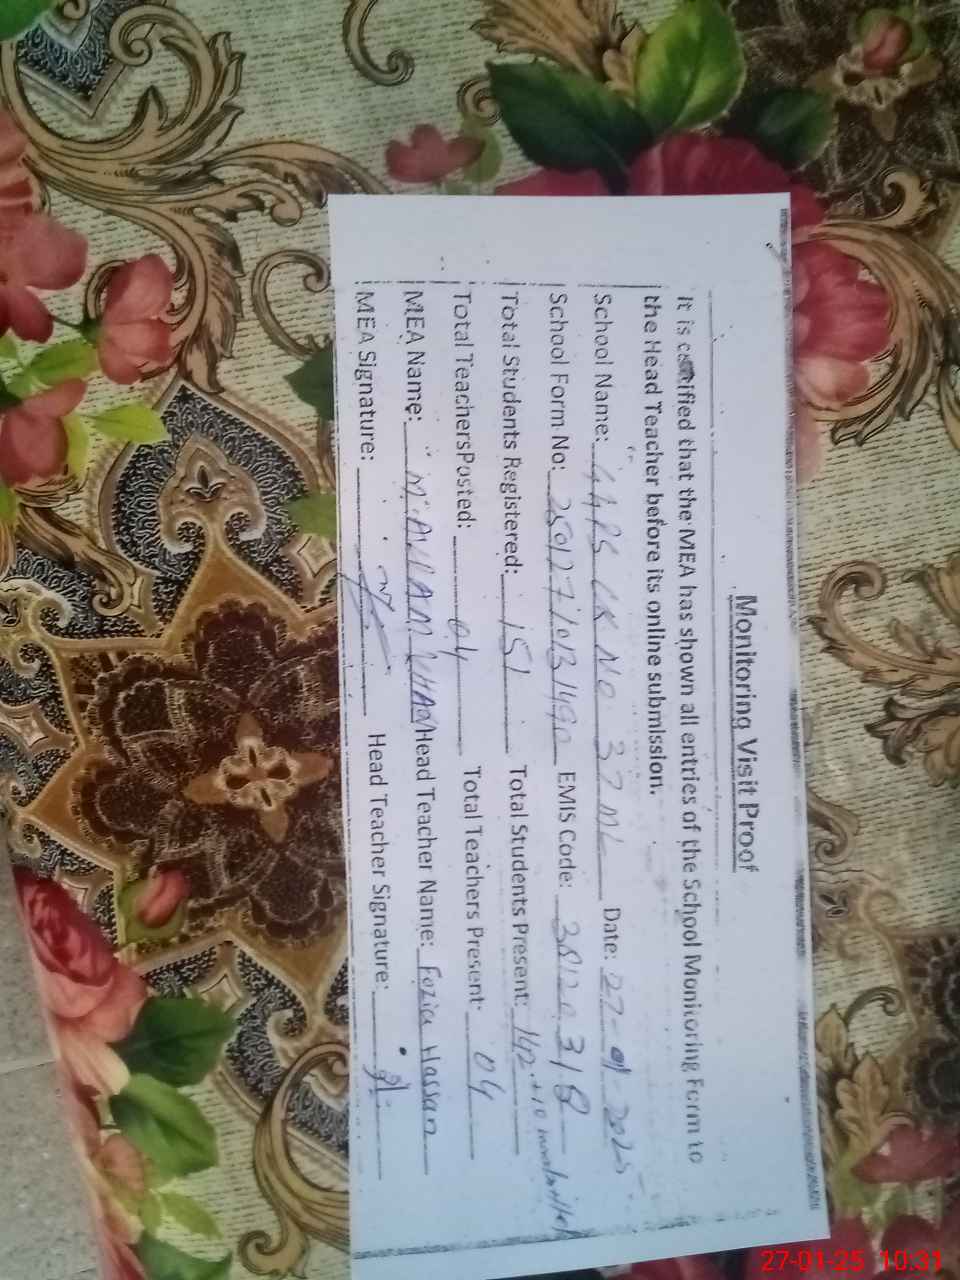 Monitoring Visit Proof
It is certified that the MEA has shown all entries of the School Monitoring Form to
the Head Teacher before its online submission.
School Name: No 37 ML Date: 27-01-2025
School Form No: EMIS Code:
Total Students Registered: 151 Total Students Present: 142
Total TeachersPosted: 04 Total Teachers Present: 04
MEA Name: Head Teacher Name: Fozia Hassan
MEA Signature: Head Teacher Signature:
27-01-25 10:31